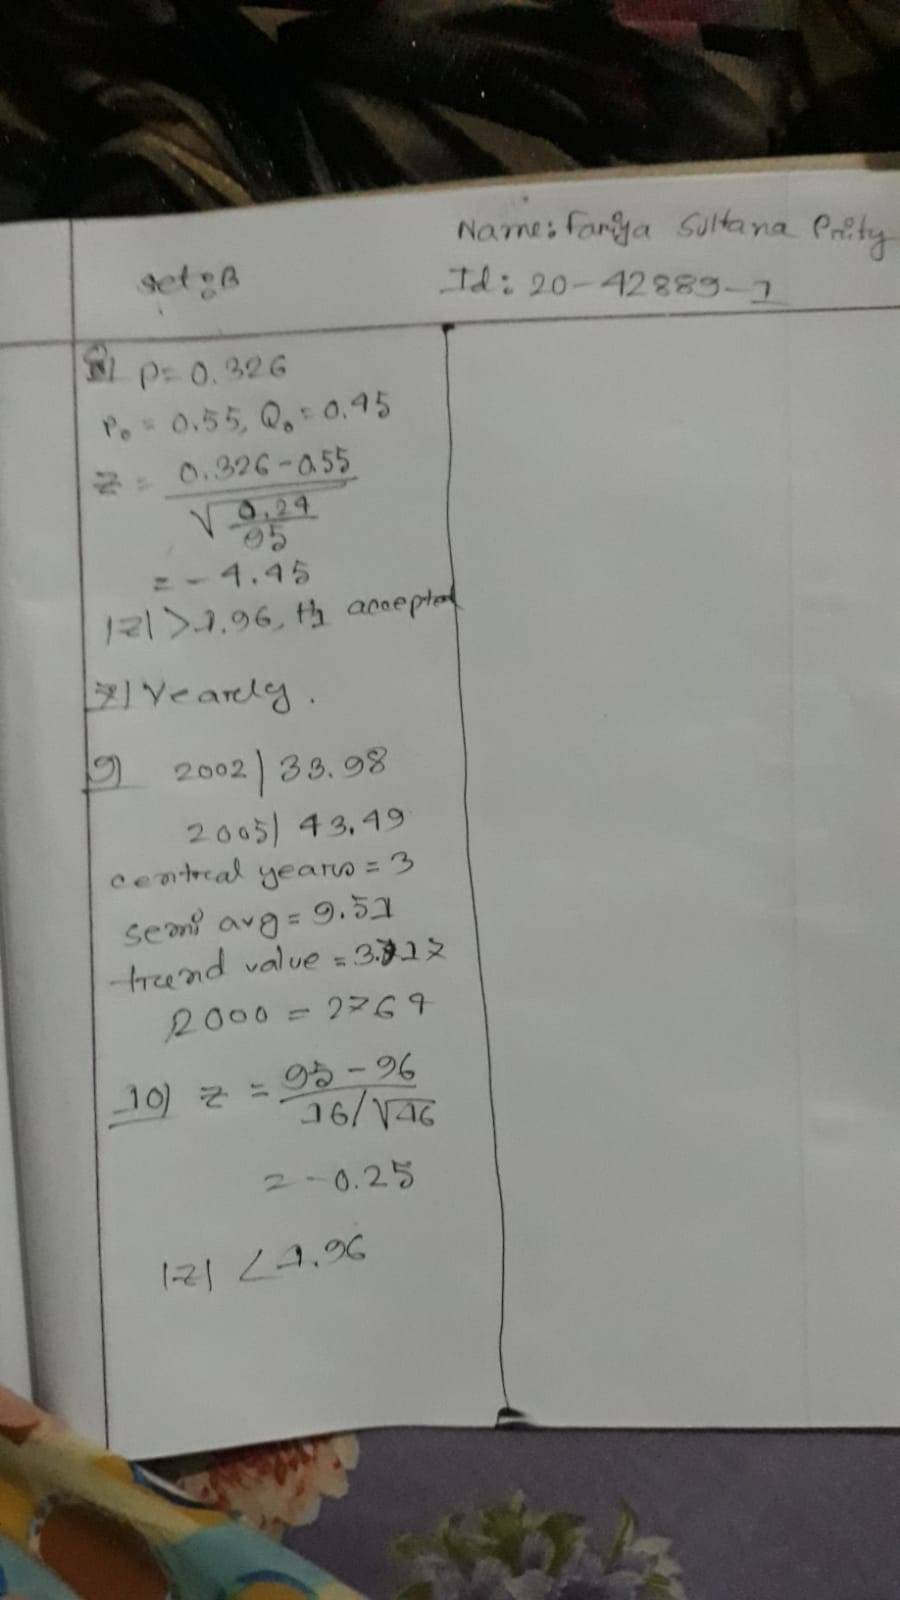 Name: Fariya Sultana Prity
set: B
Id: 20-42889-1
P = 0.326
P₀ = 0.55, Q₀ = 0.45
z = 0.326-0.55
√ 0.24
95
= -4.45
|z| > 1.96, H₁ accepted
7) Yearly.
9) 2002 | 33.98
2005 | 43.49
central years = 3
semi avg = 9.51
trend value = 3.17
2000 = 2764
10) z = 95 - 96
16/√16
= -0.25
|z| < 1.96